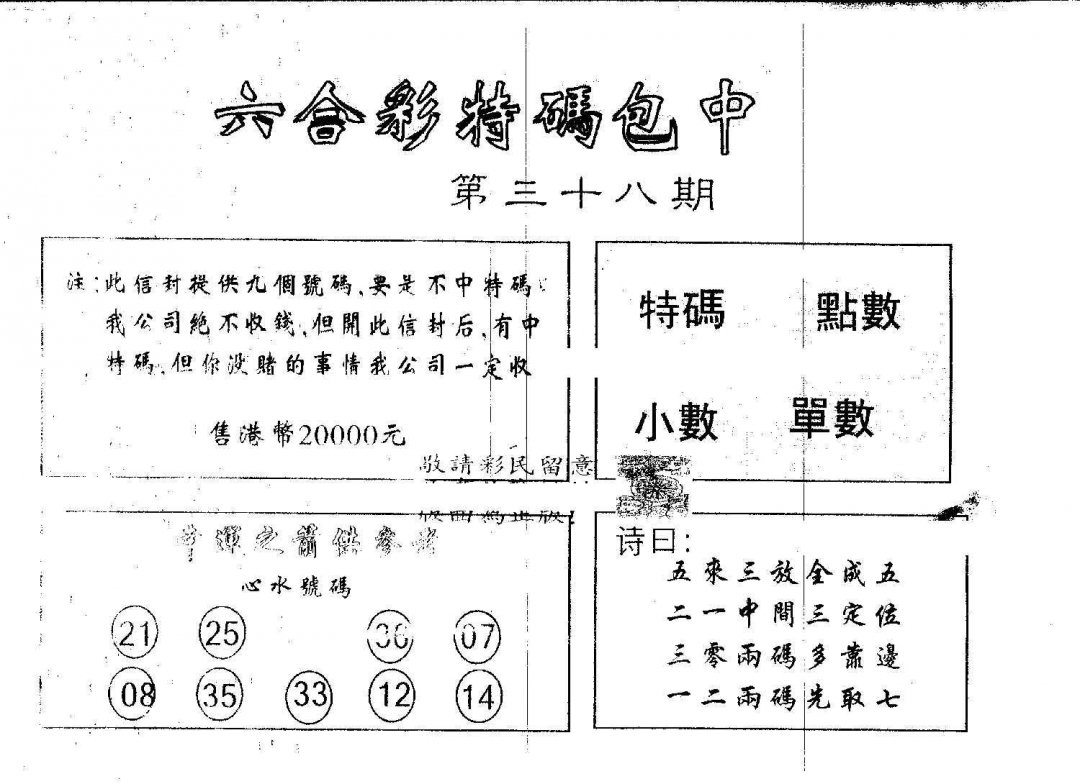 六合彩特碼包中
第三十八期
注:此信封提供九個號碼、要是不中特碼:
我公司絕不收錢,但開此信封后、有中
特碼、但你没賭的事情我公司一定收
售港幣20000元
敬請彩民留意
特碼 點數
小數 單數
幸運之箭供參考
心水號碼
21 25 36 07
08 35 33 12 14
诗曰:
五來三放全成五
二一中間三定位
三零兩碼多靠邊
一二兩碼先取七